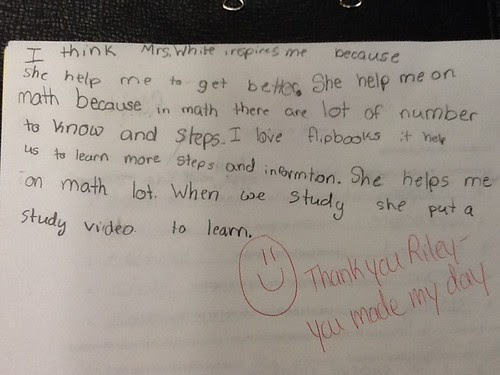 I think Mrs. White inspires me because
she help me to get better. She help me on
math because in math there are lot of number
to know and steps. I love flipbooks it help
us to learn more steps and informtion. She helps me
on math lot. When we study she put a
study video to learn.
Thank you Riley-
you made my day